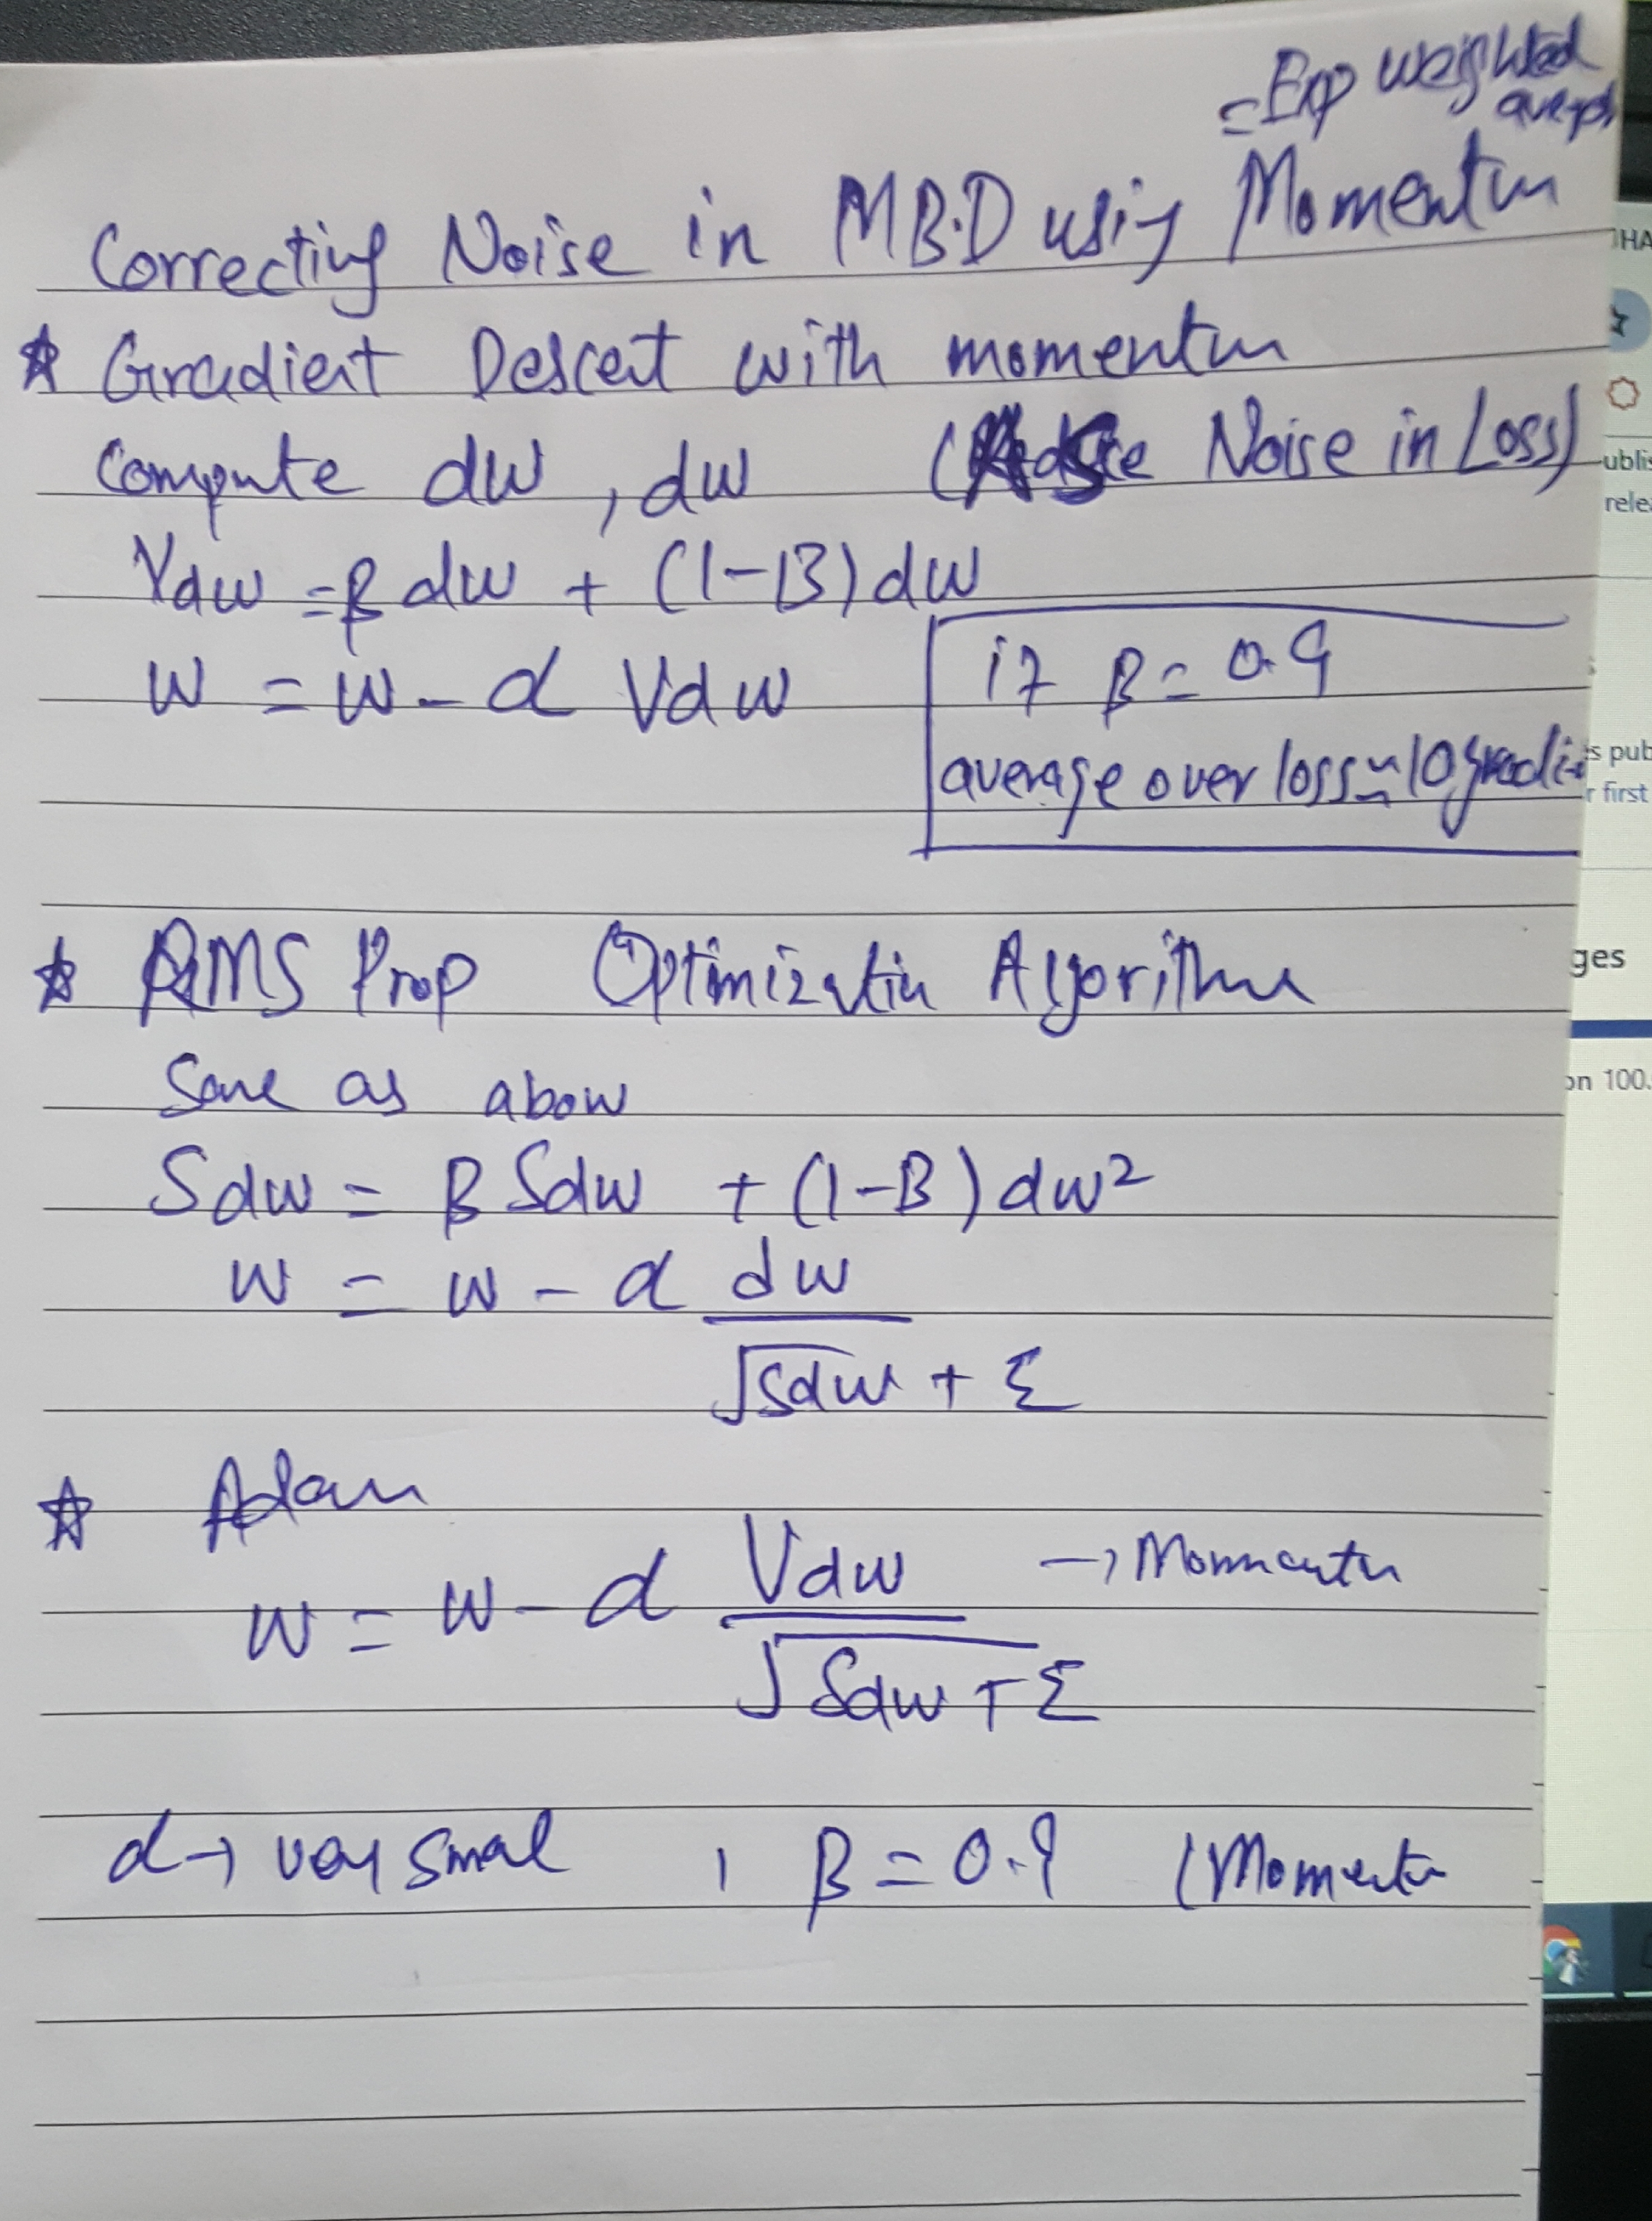 = Exp weighted
Correcting Noise in MB.D using Momentum
☆ Gradient Descent with momentum
Compute dw, dw ( Noise in Loss)
Vdw = β dw + (1-B) dw
W = W - α Vdw
if β = 0.9
average over loss ≈ 10 gradi
☆ RMS Prop Optimization Algorithm
Same as above
Sdw = β Sdw + (1-B) dw²
W = W - α dw
√Sdw + ε
☆ Adam
W = W - α Vdw → Momentum
√Sdw + ε
α → very small , β = 0.9 (Momentum
HA
ublis
rele
s pub
r first
ges
on 100.